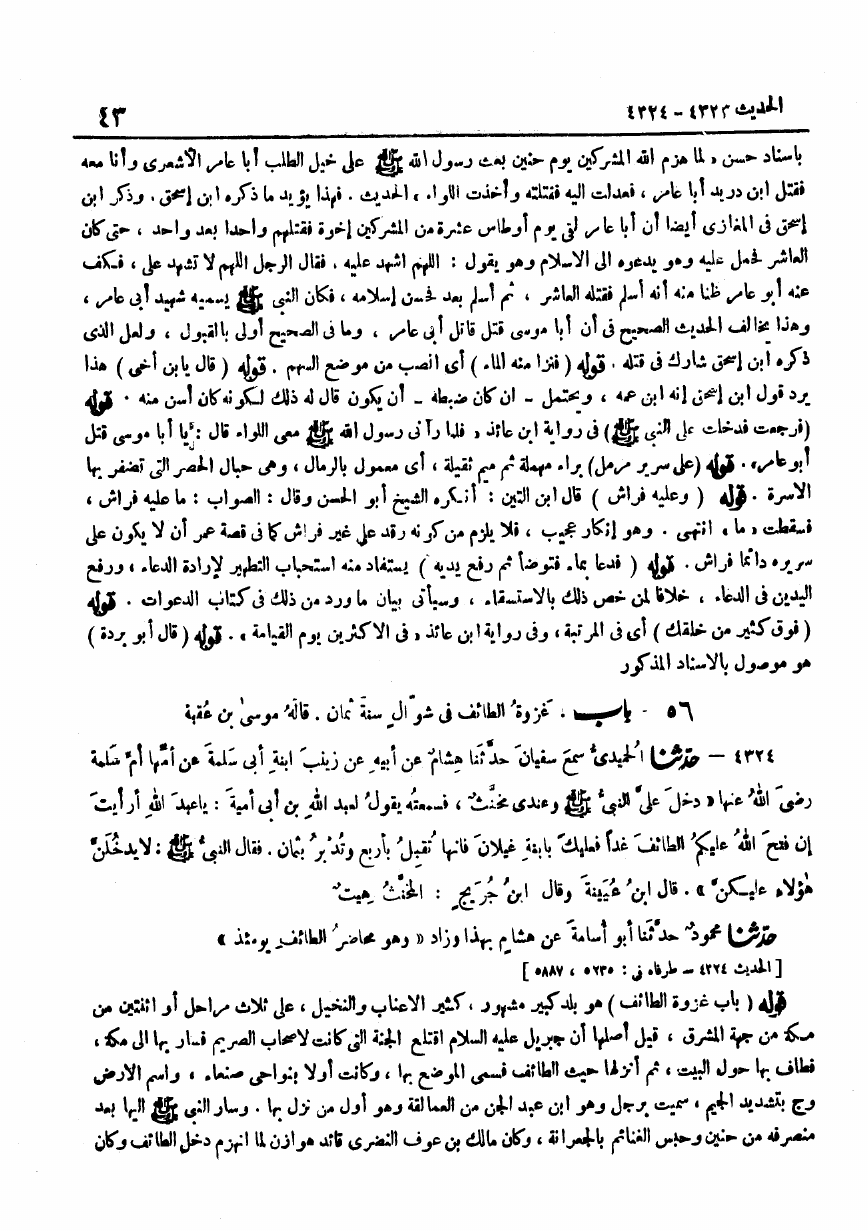 الحديث ٤٣٢٣ - ٤٣٢٤
٤٣
باسناد حسن « لما هزم الله المشركين يوم حنين بعث رسول الله ﷺ على خيل الطلب أبا عامر الأشعرى وأنا معه
فقتل ابن دريد أبا عامر ، فعدلت اليه فقتلته وأخذت اللواء » الحديث . فهذا يؤيد ما ذكره ابن إسحق . وذكر ابن
إسحق فى المغازى أيضا أن أبا عامر لقى يوم أوطاس عشرة من المشركين إخوة فقتلهم واحدا بعد واحد ، حتى كان
العاشر فحمل عليه وهو يدعوه الى الاسلام وهو يقول : اللهم اشهد عليه . فقال الرجل اللهم لا تشهد على ، فكف
عنه أبو عامر ظنا منه أنه أسلم فقتله العاشر ، ثم أسلم بعد فحسن إسلامه ، فكان النبى ﷺ يسميه شهيد أبى عامر ،
وهذا يخالف الحديث الصحيح فى أن أبا موسى قتل قاتل أبى عامر ، وما فى الصحيح أولى بالقبول ، ولعل الذى
ذكره ابن إسحق شارك فى قتله . قوله ( فنزا منه الماء ) أى انصب من موضع السهم . قوله ( قال يا ابن أخى ) هذا
يرد قول ابن إسحق إنه ابن عمه ، ويحتمل - ان كان ضبطه - أن يكون قال له ذلك لكونه كان أسن منه . قوله
(فرجعت فدخلت على النبى ﷺ) فى رواية ابن عائذ « فلما رآنى رسول الله ﷺ معى اللواء قال : يا أبا موسى قتل
أبو عامر » . قوله (على سرير مرمل) براء مهملة ثم ميم ثقيلة ، أى معمول بالرمال ، وهى حبال الحصر التى تضفر بها
الاسرة . قوله ( وعليه فراش ) قال ابن التين : أنكره الشيخ أبو الحسن وقال : الصواب : ما عليه فراش ،
فسقطت « ما » انتهى . وهو إنكار عجيب ، فلا يلزم من كونه رقد على غير فراش كما فى قصة عمر أن لا يكون على
سريره دائما فراش . قوله ( فدعا بماء فتوضأ ثم رفع يديه ) يستفاد منه استحباب التطهير لإرادة الدعاء ، ورفع
اليدين فى الدعاء ، خلافا لمن خص ذلك بالاستسقاء ، وسيأتى بيان ما ورد من ذلك فى كتاب الدعوات . قوله
( فوق كثير من خلقك ) أى فى المرتبة ، وفى رواية ابن عائذ « فى الاكثرين يوم القيامة » . قوله ( قال أبو بردة )
هو موصول بالاسناد المذكور
٥٦ - باب . غزوةُ الطائف فى شوالٍ سنةَ ثمان . قالهُ موسىٰ بن عُقبة
٤٣٢٤ – حدّثنا الحميدىُّ سمعَ سفيانَ حدَّثَنا هِشامٌ عن أبيهِ عن زينبَ ابنةِ أبى سَلمةَ عن أمِّها أمِّ سَلمة
رضىَ اللهُ عنها « دخلَ علىَّ النبىُّ ﷺ وعندى مخنَّثٌ ، فسمعتُه يقولُ لعبد اللهِ بن أبى أميةَ : ياعبدَ اللهِ أرأيتَ
إن فتحَ اللهُ عليكمُ الطائفَ غداً فعليكَ بابنةِ غيلانَ فانها تُقبِلُ بأربع وتُدْبِرُ بثمان . فقال النبىُّ ﷺ : لا يدخُلَنَّ
هؤلاءِ عليكنَّ » . قال ابنُ عُيَينةَ وقال ابنُ جُرَيجٍ : المخنَّثُ هِيتٌ
حدّثنا محمودٌ حدَّثَنا أبو أسامةَ عن هشامٍ بهذا وزاد « وهو محاصرُ الطائفِ يومئذ »
[ الحديث ٤٣٢٤ - طرفاه فى : ٥٢٣٥ ، ٥٨٨٧ ]
قوله ( باب غزوة الطائف ) هو بلد كبير مشهور ، كثير الاعناب والنخيل ، على ثلاث مراحل أو اثنتين من
مكة من جهة المشرق ، قيل أصلها أن جبريل عليه السلام اقتلع الجنة التى كانت لاصحاب الصريم فسار بها الى مكة ،
فطاف بها حول البيت ، ثم أنزلها حيث الطائف فسمى الموضع بها ، وكانت أولا بنواحى صنعاء ، واسم الارض
وج بتشديد الجيم ، سميت برجل وهو ابن عبد الجن من العمالقة وهو أول من نزل بها . وسار النبى ﷺ اليها بعد
منصرفه من حنين وحبس الغنائم بالجعرانة ، وكان مالك بن عوف النضرى قائد هوازن لما انهزم دخل الطائف وكان